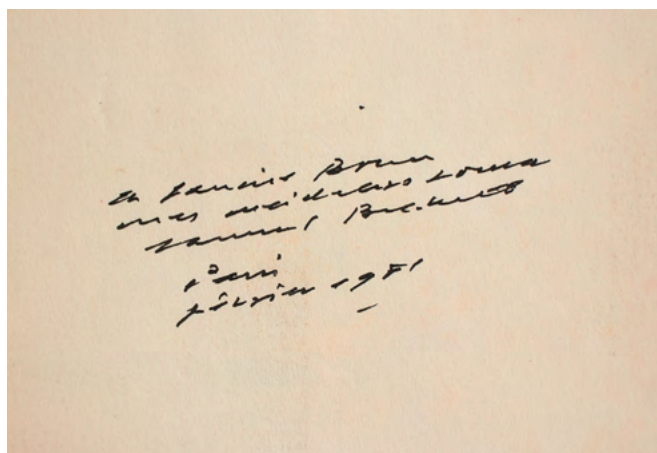 à Francis Bacon
mes meilleurs vœux
Samuel Beckett
Paris
février 1981